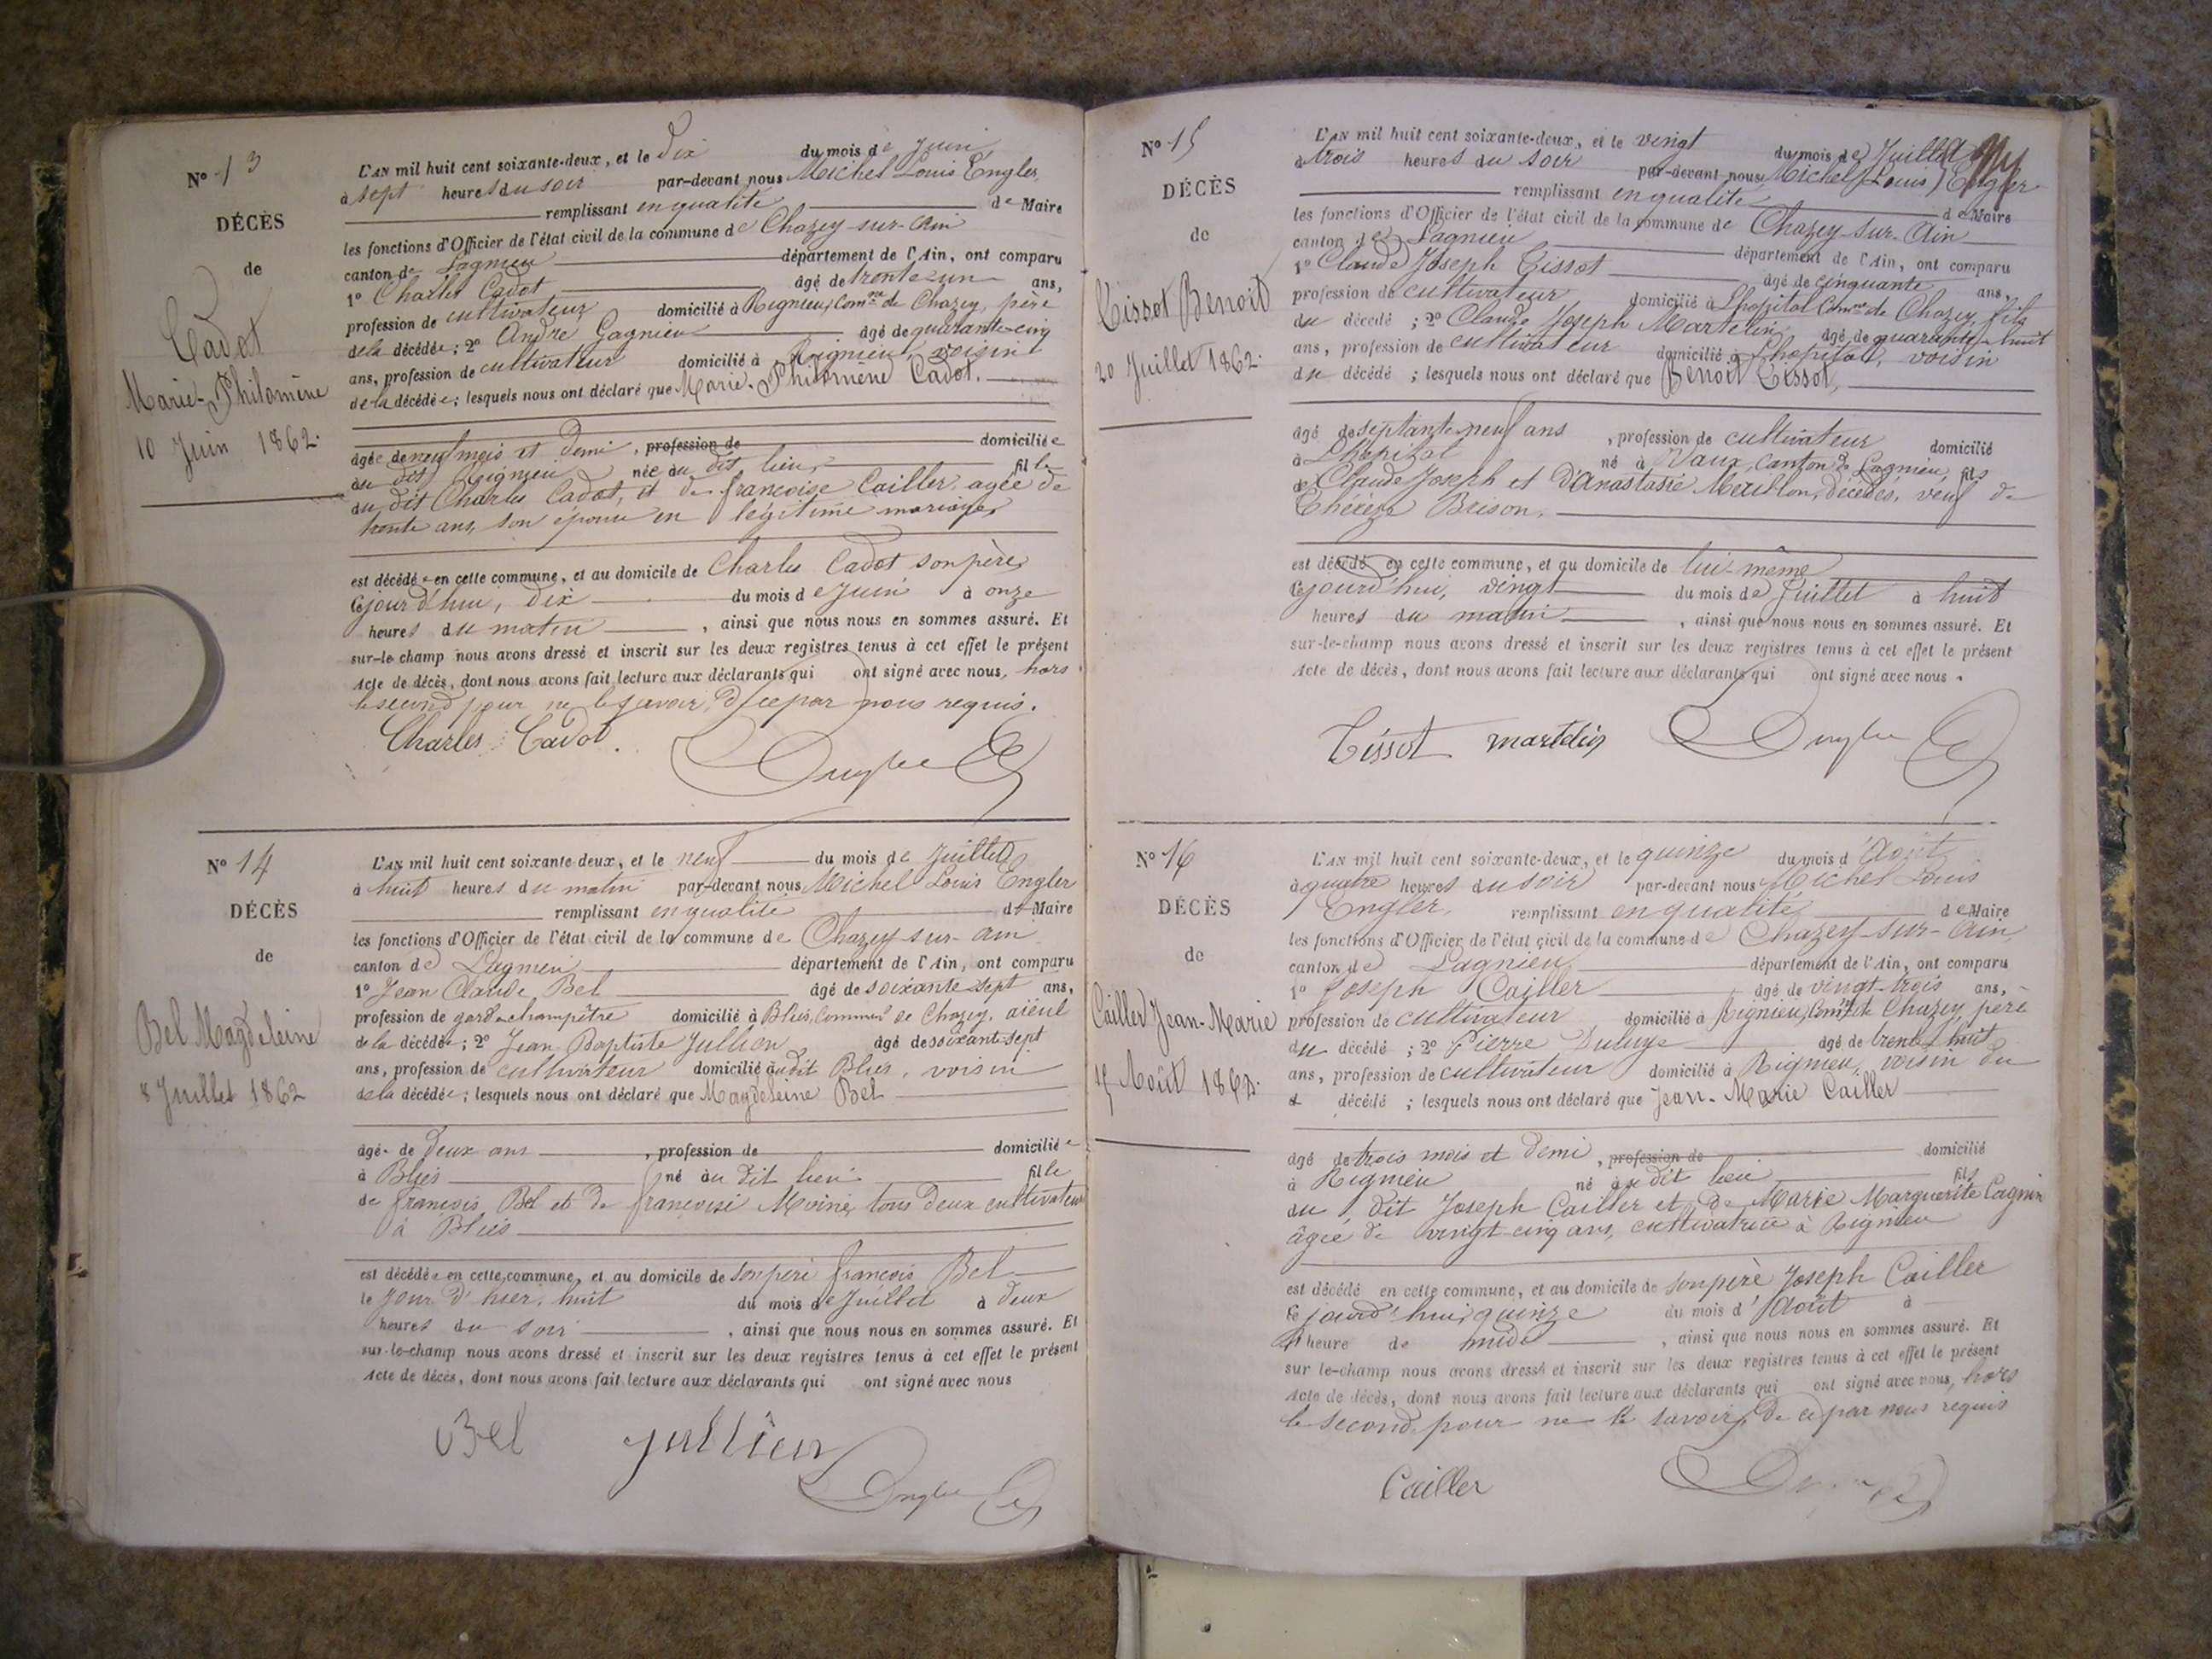 N° 13
DÉCÈS
de
Cadot
Marie-Philomène
10 Juin 1862.
L'AN mil huit cent soixante-deux, et le dix du mois de Juin
à sept heures du soir par-devant nous Michel Louis Engler
remplissant en qualité de Maire
les fonctions d'Officier de l'état civil de la commune de Chazey-sur-Ain
canton de Lagnieu département de l'Ain, ont comparu
1° Charles Cadot âgé de trente-un ans,
profession de cultivateur domicilié à Rignieu, Comne de Chazey, père
de la décédée; 2° André Gagnieu âgé de quarante-cinq
ans, profession de cultivateur domicilié à Rignieu, voisin
de la décédée; lesquels nous ont déclaré que Marie-Philomène Cadot.
âgée de neuf mois et demi, profession de domiciliée
au dit Rignieu née au dit lieu fille
du dit Charles Cadot, et de françoise Cailler agée de
trente ans, son épouse en légitime mariage,
est décédée en cette commune, et au domicile de Charles Cadot son père,
cejourd'hui, dix du mois de Juin à onze
heures du matin, ainsi que nous nous en sommes assuré. Et
sur-le-champ nous avons dressé et inscrit sur les deux registres tenus à cet effet le présent
Acte de décès, dont nous avons fait lecture aux déclarants qui ont signé avec nous, hors
le second pour ne le savoir, de ce par nous requis.
Charles Cadot.
N° 14
DÉCÈS
de
Bel Magdeleine
8 Juillet 1862
L'AN mil huit cent soixante-deux, et le neuf du mois de Juillet
à huit heures du matin par-devant nous Michel Louis Engler
remplissant en qualité de Maire
les fonctions d'Officier de l'état civil de la commune de Chazey-sur-Ain
canton de Lagnieu département de l'Ain, ont comparu
1° Jean Claude Bel âgé de soixante-sept ans,
profession de garde champêtre domicilié à Bliès, Commune de Chazey, aïeul
de la décédée; 2° Jean Baptiste Jullien âgé de soixante-sept
ans, profession de cultivateur domicilié audit Bliès, voisin
de la décédée; lesquels nous ont déclaré que Magdeleine Bel
âgé de deux ans, profession de domiciliée
à Bliès né au dit lieu fille
de françois Bel et de françoise Moine, tous deux cultivateurs
à Bliès
est décédée en cette commune, et au domicile de son père françois Bel
le jour d'hier, huit du mois de Juillet à deux
heures du soir, ainsi que nous nous en sommes assuré. Et
sur-le-champ nous avons dressé et inscrit sur les deux registres tenus à cet effet le présent
Acte de décès, dont nous avons fait lecture aux déclarants qui ont signé avec nous
Bel Jullien
N° 15
DÉCÈS
de
Tissot Benoit
20 Juillet 1862.
L'AN mil huit cent soixante-deux, et le vingt du mois de Juillet
à trois heures du soir par-devant nous Michel (Louis) Engler
remplissant en qualité de Maire
les fonctions d'Officier de l'état civil de la commune de Chazey-sur-Ain
canton de Lagnieu département de l'Ain, ont comparu
1° Claude Joseph Tissot âgé de cinquante ans,
profession de cultivateur domicilié à Lhopital Comne de Chazey, fils
du décédé; 2° Claude Joseph Martelin âgé de quarante-huit
ans, profession de cultivateur domicilié à Lhopital, voisin
du décédé; lesquels nous ont déclaré que Benoit Tissot,
âgé de septante-neuf ans, profession de cultivateur domicilié
à Lhopital né à Vaux, canton de Lagnieu, fils
de Claude Joseph et d'Anastasie décédés, veuf de
Thérèze Brison,
est décédé en cette commune, et au domicile de lui-même
cejourd'hui, vingt du mois de Juillet à huit
heures du matin, ainsi que nous nous en sommes assuré. Et
sur-le-champ nous avons dressé et inscrit sur les deux registres tenus à cet effet le présent
Acte de décès, dont nous avons fait lecture aux déclarants qui ont signé avec nous.
Tissot martelin
N° 16
DÉCÈS
de
Cailler Jean-Marie
15 Août 1862.
L'AN mil huit cent soixante-deux, et le quinze du mois d'Août
à quatre heures du soir par-devant nous Michel Louis
Engler, remplissant en qualité de Maire
les fonctions d'Officier de l'état civil de la commune de Chazey-sur-Ain,
canton de Lagnieu département de l'Ain, ont comparu
1° Joseph Cailler âgé de vingt-trois ans,
profession de cultivateur domicilié à Rignieu, Comne de Chazey, père
du décédé; 2° Pierre âgé de trente-huit
ans, profession de cultivateur domicilié à Rignieu, voisin du
décédé; lesquels nous ont déclaré que Jean-Marie Cailler
âgé de trois mois et demi, profession de domicilié
à Rignieu né au dit lieu fils
du dit Joseph Cailler et de Marie Marguerite
âgée de vingt-cinq ans, cultivatrice à Rignieu
est décédé en cette commune, et au domicile de son père Joseph Cailler
cejourd'hui, quinze du mois d'Août à
heure de midi, ainsi que nous nous en sommes assuré. Et
sur-le-champ nous avons dressé et inscrit sur les deux registres tenus à cet effet le présent
Acte de décès, dont nous avons fait lecture aux déclarants qui ont signé avec nous, hors
le second pour ne le savoir, de ce par nous requis
Cailler